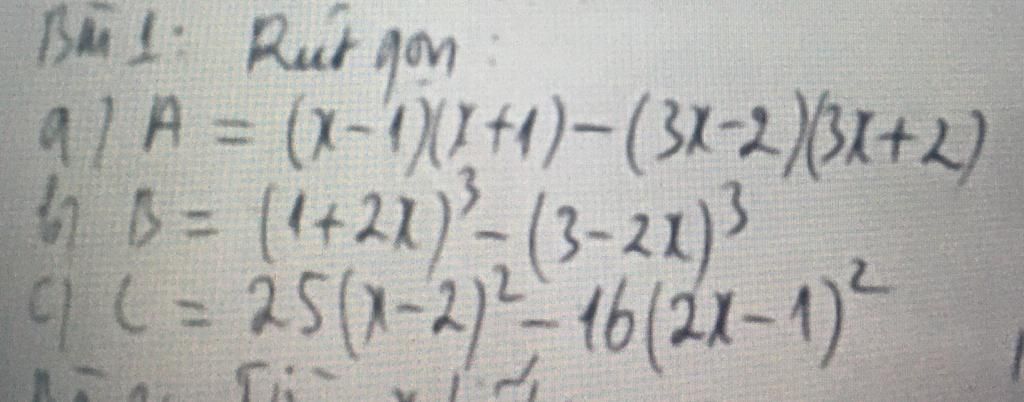 Bài 1: Rút gọn:
a) A = (x-1)(x+1)-(3x-2)(3x+2)
b) B = (1+2x)³-(3-2x)³
c) C = 25(x-2)²-16(2x-1)²